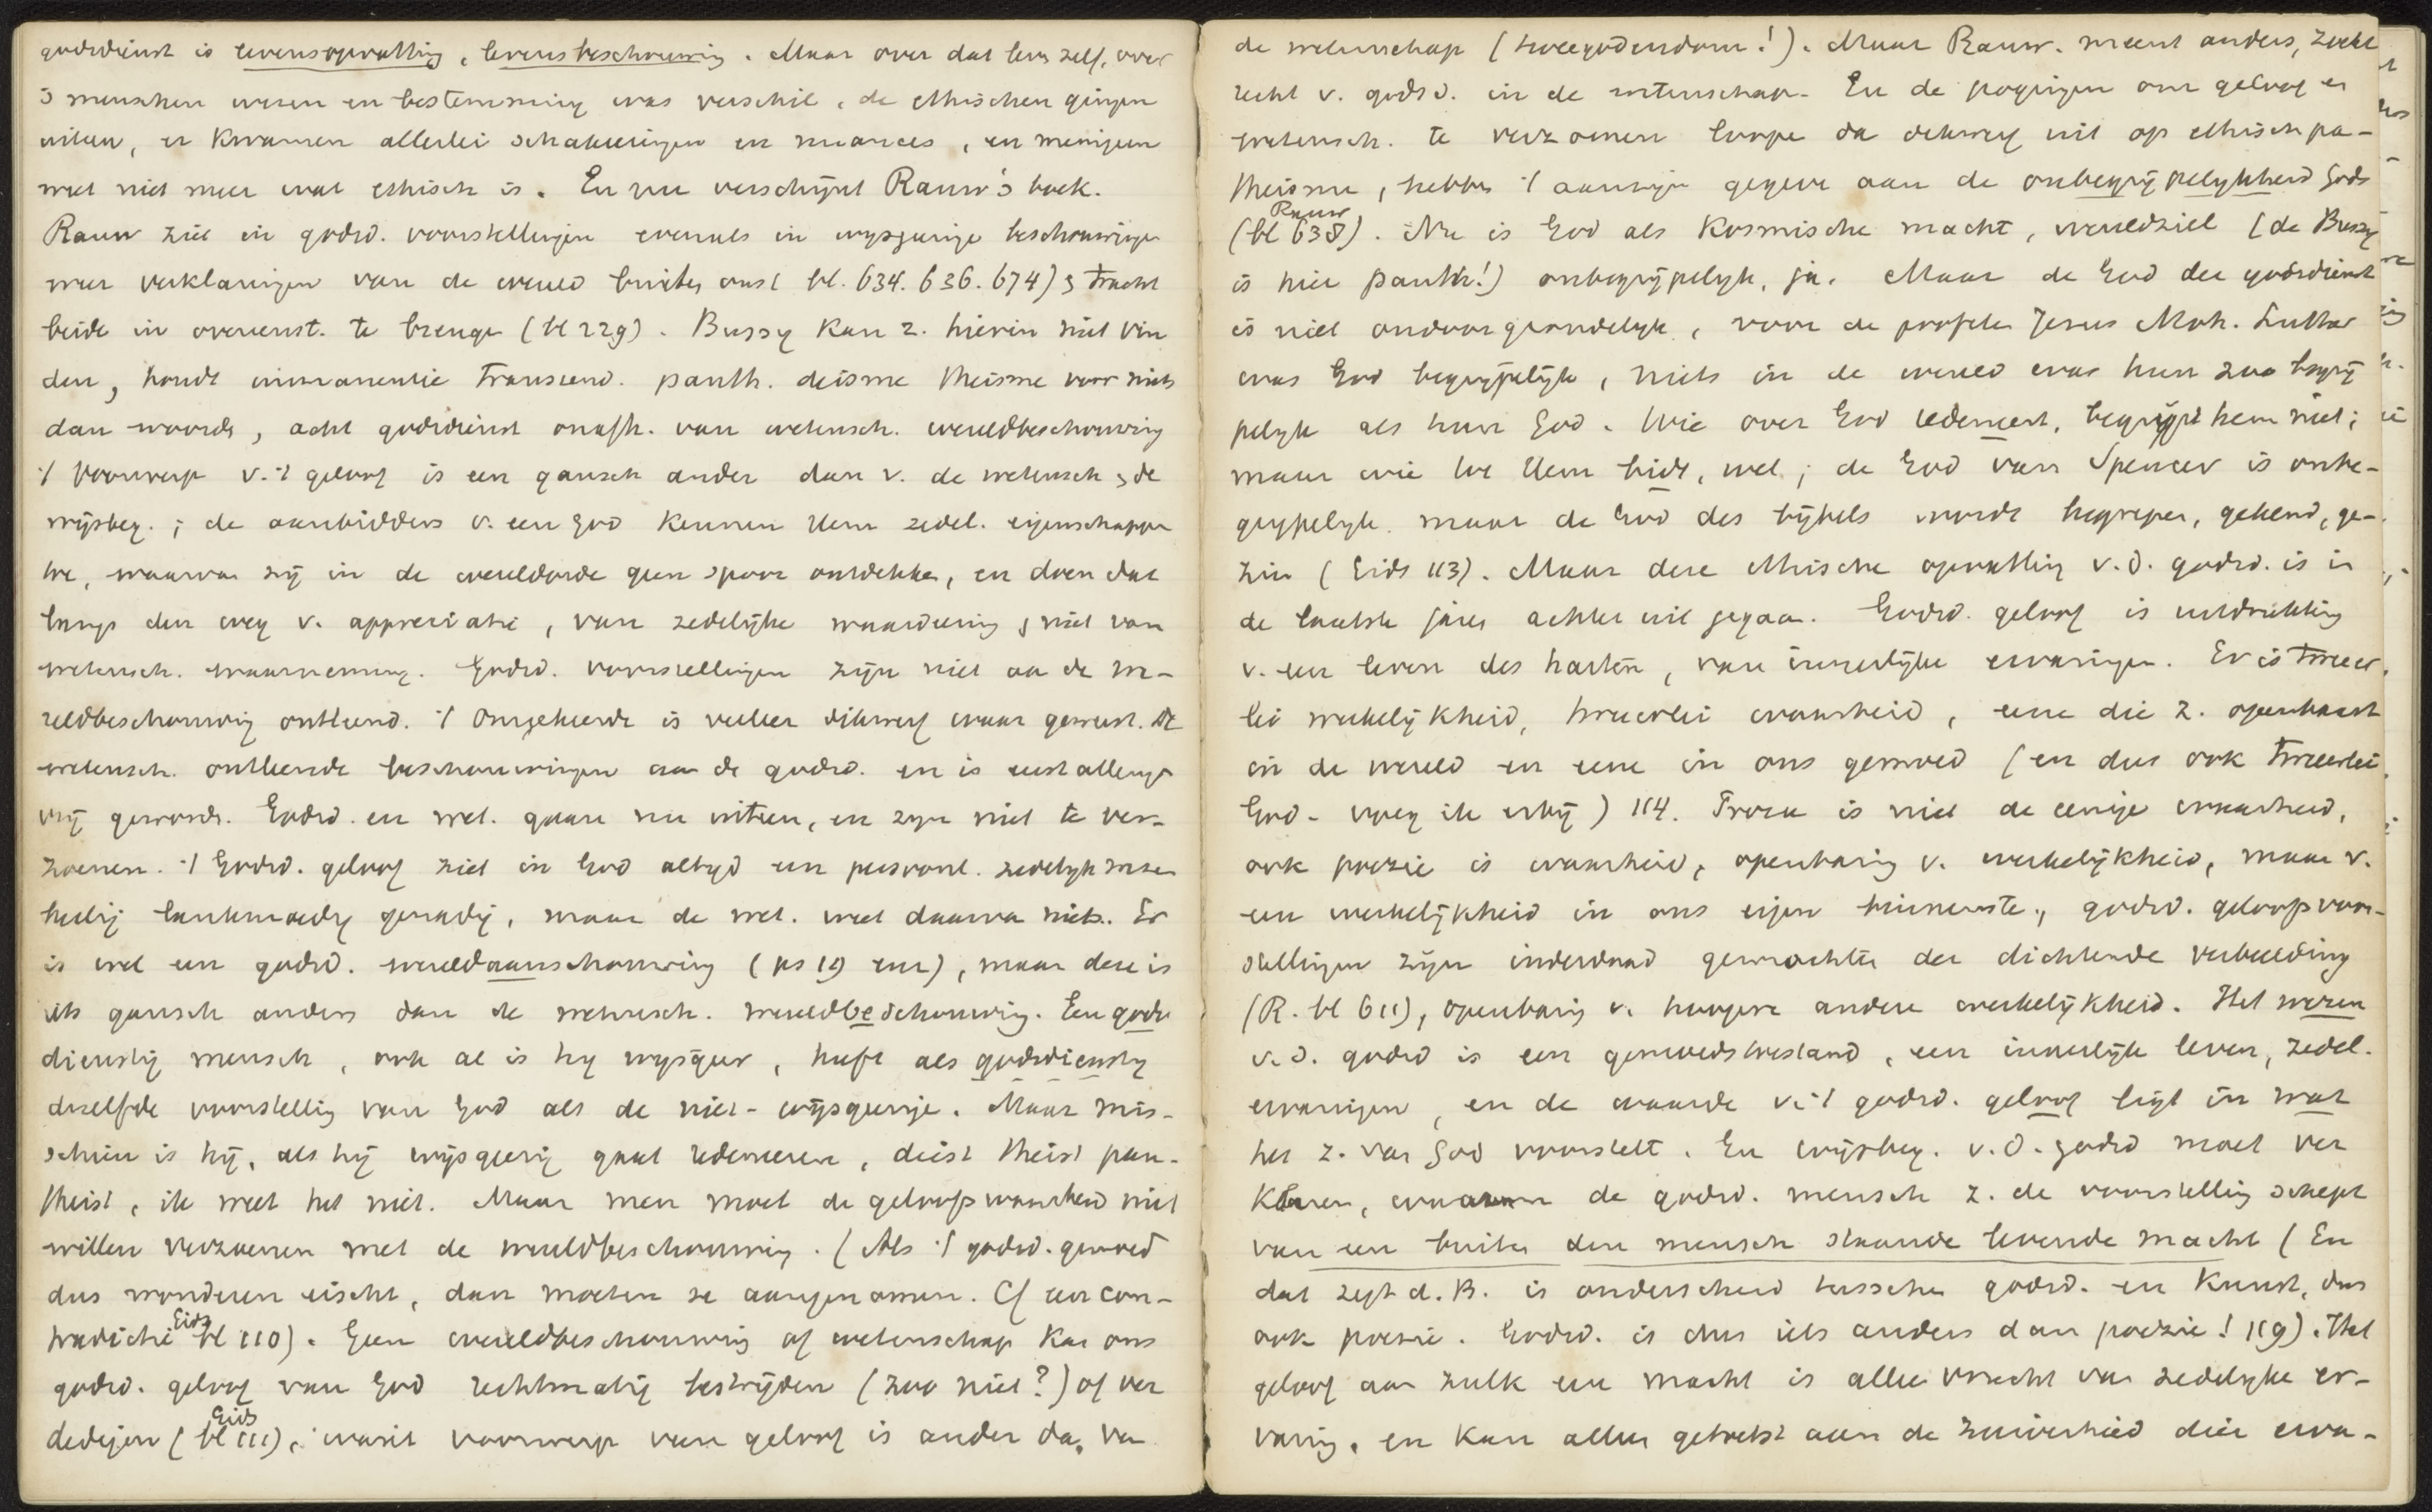 godsdienst is levensopvatting, levensbeschouwing. Maar over dat leven zelf, over
's menschen wezen en bestemming was verschil, de ethischen gingen
uiteen, er kwamen allerlei schakeeringen en nuances, en menigeen
weet niet meer wat ethisch is. En nu verschijnt Rauw's boek.
Rauw ziet in godsd. voorstellingen evenals in wijsgeerige beschouwingen
meer verklaringen van de wereld buiten ons (bl. 634. 636. 674) & tracht
beide in overeenst. te brengen (bl 229). Bussy kan z. hierin niet vin
den, houdt immanentie transcend. panth. deisme theisme voor niets
dan woorden, acht godsdienst onafh. van wetensch. wereldbeschouwing
't voorwerp v. 't geloof is een gansch ander dan v. de wetensch & de
wijsbeg.; de aanbidders v. een God kennen Hem zedel. eigenschappen
toe, waarvan zij in de wereldorde geen spoor ontdekken, en doen dat
langs den weg v. appreciatie, van zedelijke waardeering & niet van
wetensch. waarneming. Godsd. voorstellingen zijn niet aan de we-
reldbeschouwing ontleend. 't omgekeerde is veeleer dikwerf waar geweest. De
wetensch. ontleende beschouwingen aan de godsd. en is eerst allengs
vrij geworden. Godsd. en wet. gaan nu uiteen, en zijn niet te ver-
zoenen. 't Godsd. geloof ziet in God altijd een persoonl. zedelijk wezen
heilig lankmoedig genadig, maar de wet. weet daarvan niets. Er
is wel een godsd. wereldaanschouwing (ps 19 enz), maar deze is
iets gansch anders dan de wetensch. wereldbeschouwing. Een gods
dienstig mensch, ook al is hij wijsgeer, heeft als godsdienstig
dezelfde voorstelling van God als de niet-wijsgeerige. Maar mis-
schien is hij, als hij wijsgeerig gaat redeneeren, deist theist pan-
theist, ik weet het niet. Maar men moet de geloofswaarheid niet
willen verzoenen met de wereldbeschouwing. (Als 't godsd. gemoed
dus wonderen eischt, dan moeten ze aangenomen. Cf een con-
tradictie Gids bl 110). Geen wereldbeschouwing of wetenschap kan ons
godsd. geloof van God rechtmatig bestrijden (zoo niet?) of ver
dedigen (Gids bl 111), want voorwerp van geloof is ander dan van
de wetenschap (tweegodendom!). Maar Rauw. meent anders, zoekt
recht v. godsd. in de wetenschap. En de pogingen om geloof en
wetensch. te verzoenen loopen dan dikwerf uit op ethisch pan-
theisme, hebben 't aanzijn gegeven aan de onbegrijpelijkheid Gods
(Rauw bl 638). Nu is God als kosmische macht, wereldziel (de Bussy
is hier panth!) onbegrijpelijk, ja. Maar de God der godsdienst
is niet ondoorgrondelijk, voor de profeten Jezus Moh. Luther
was God begrijpelijk, niets in de wereld was hun zoo begrij
pelijk als hun God. Wie over God redeneert, begrijpt hem niet;
maar wie tot Hem bidt, wel; de God van Spencer is onbe-
grijpelijk maar de God des bijbels wordt begrepen, gekend, ge-
zien (Gids 113). Maar deze ethische opvatting v. d. godsd. is in
de laatste jaren achteruit gegaan. Godsd. geloof is uitdrukking
v. een leven des harten, van innerlijke ervaringen. Er is tweeer
lei werkelijkheid, tweeerlei waarheid, eene die z. openbaart
in de wereld en eene in ons gemoed (en dus ook tweeerlei
God - voeg ik erbij) 114. Proza is niet de eenige waarheid,
ook poezie is waarheid, openbaring v. werkelijkheid, maar v.
een werkelijkheid in ons eigen binnenste, godsd. geloofsvoor-
stellingen zijn inderdaad gewrochten der dichtende verbeelding
(R. bl 611), openbaring v. hoogere andere werkelijkheid. Het wezen
v. d. godsd is een gemoedstoestand, een innerlijk leven, zedel.
ervaringen, en de waarde v. 't godsd. geloof ligt in wat
het z. van God voorstelt. En wijsbeg. v. d. godsd moet ver
klaren, waarom de godsd. mensch z. de voorstelling schept
van een buiten den mensch staande levende macht (En
dat zegt d. B. is onderscheid tusschen godsd. en kunst, dus
ook poezie. Godsd. is dus iets anders dan poezie! 119). Het
geloof aan zulk een macht is alleen vrucht van zedelijke er-
varing, en kan alleen getoetst aan de zuiverheid dier erva-